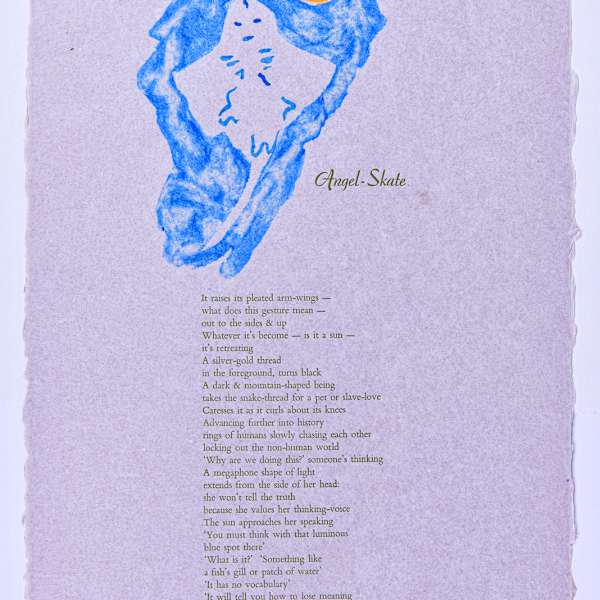 Angel-Skate
It raises its pleated arm-wings —
what does this gesture mean —
out to the sides & up
Whatever it's become — is it a sun —
it's retreating
A silver-gold thread
in the foreground, turns black
A dark & mountain-shaped being
takes the snake-thread for a pet or slave-love
Caresses it as it curls about its knees
Advancing further into history
rings of humans slowly chasing each other
locking out the non-human world
‘Why are we doing this?’ someone's thinking
A megaphone shape of light
extends from the side of her head:
she won't tell the truth
because she values her thinking-voice
The sun approaches her speaking
‘You must think with that luminous
blue spot there’
‘What is it?’ ‘Something like
a fish's gill or patch of water’
‘It has no vocabulary’
‘It will tell you how to lose meaning